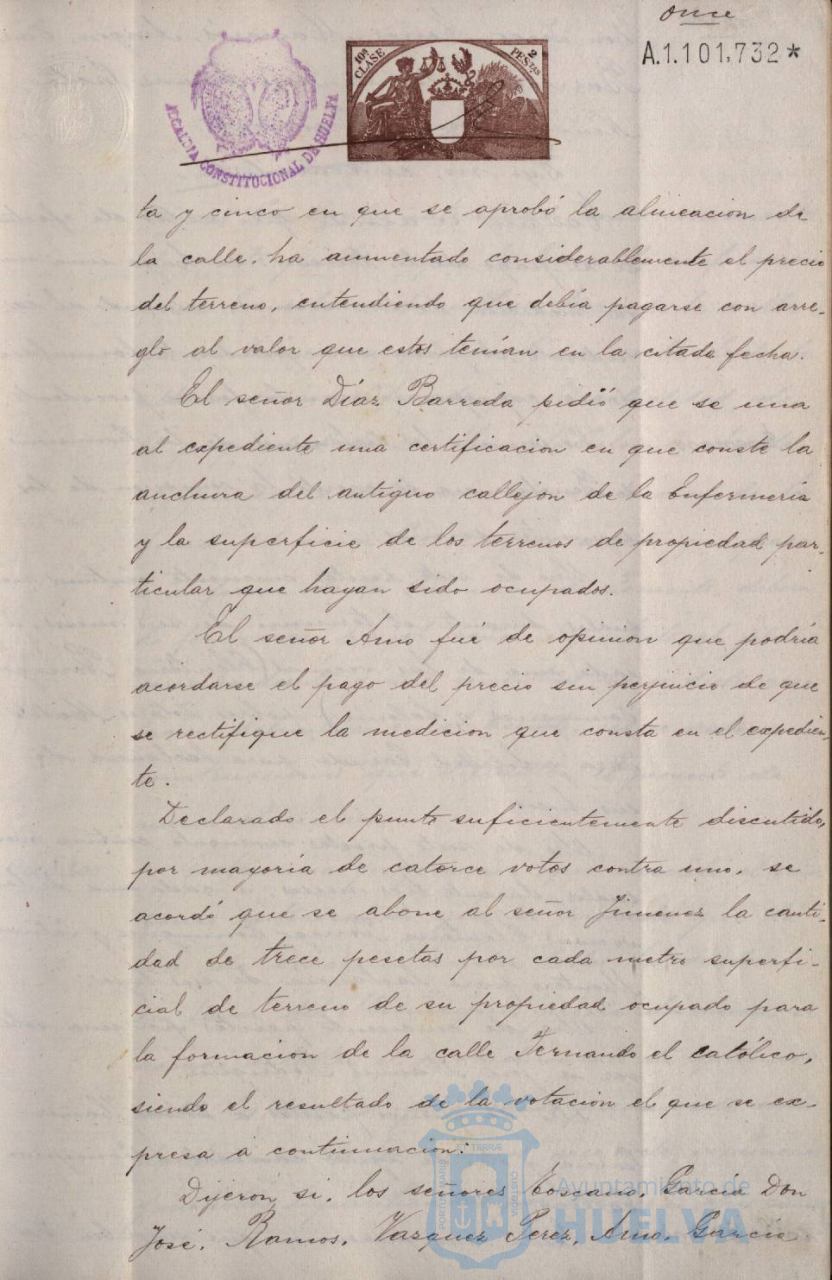 once
A.1.101,732*
10ª CLASE
2 PESTAS
ALCALDIA CONSTITUCIONAL DE HUELVA
ta y cinco en que se aprobó la alineacion de
la calle, ha aumentado considerablemente el precio
del terreno, entendiendo que debía pagarse con arre-
glo al valor que estos tenían en la citada fecha.
El señor Díaz Barreda pidió que se una
al expediente una certificacion en que conste la
anchura del antiguo callejon de la Enfermería
y la superficie de los terrenos de propiedad par-
ticular que hayan sido ocupados.
El señor Amo fué de opinion que podría
acordarse el pago del precio sin perjuicio de que
se rectifique la medicion que consta en el expedien-
te.
Declarado el punto suficientemente discutido,
por mayoría de catorce votos contra uno, se
acordó que se abone al señor Jimenez la canti-
dad de trece pesetas por cada metro superfi-
cial de terreno de su propiedad ocupado para
la formacion de la calle Fernando el católico,
siendo el resultado de la votacion el que se ex-
presa á continuacion:
Dijeron si, los señores Toscano, García Don
José, Ramos, Vazquez Perez, Amo, García
Ayuntamiento de
HUELVA